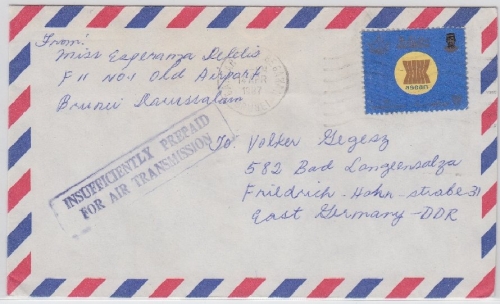 From:
Miss Esperanza
F 11 No.1 Old Airport
Brunei Darussalam
1987
asean
INSUFFICIENTLY PREPAID
FOR AIR TRANSMISSION
To: Volker Gegesz
582 Bad Langensalza
Friedrich-Hahn-straße 31
East Germany-DDR